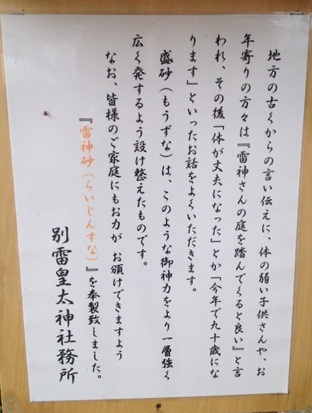 地方の古くからの言い伝えに、体の弱い子供さんや、お
年寄りの方々は『雷神さんの庭を踏んでくると良い』と言
われ、その後「体が丈夫になった」とか「今年で九十歳にな
ります」といったお話をよくいただきます。
盛砂（もうずな）は、このような御神力をより一層強く
広く発するよう設け整えたものです。
なお、皆様のご家庭にもお力が お頒けできますよう
『雷神砂（らいじんすな）』を奉製致しました。
別雷皇太神社務所